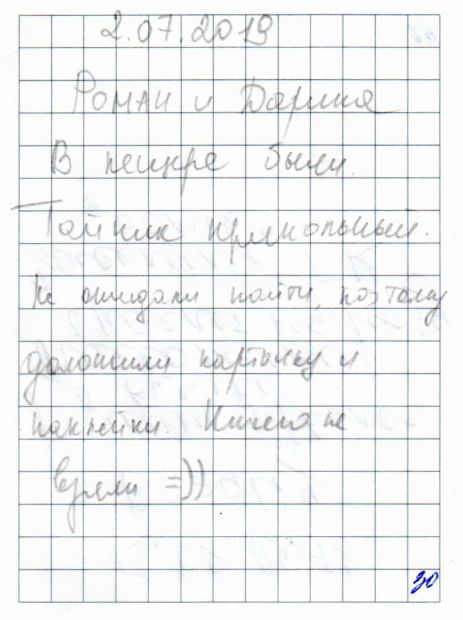 2.07.2019
Роман и Дарина
В пещере были.
Тайник прикольный.
Не ожидали найти, поэтому
доложили картинку и
наклейки. Ничего не
взяли =))
30